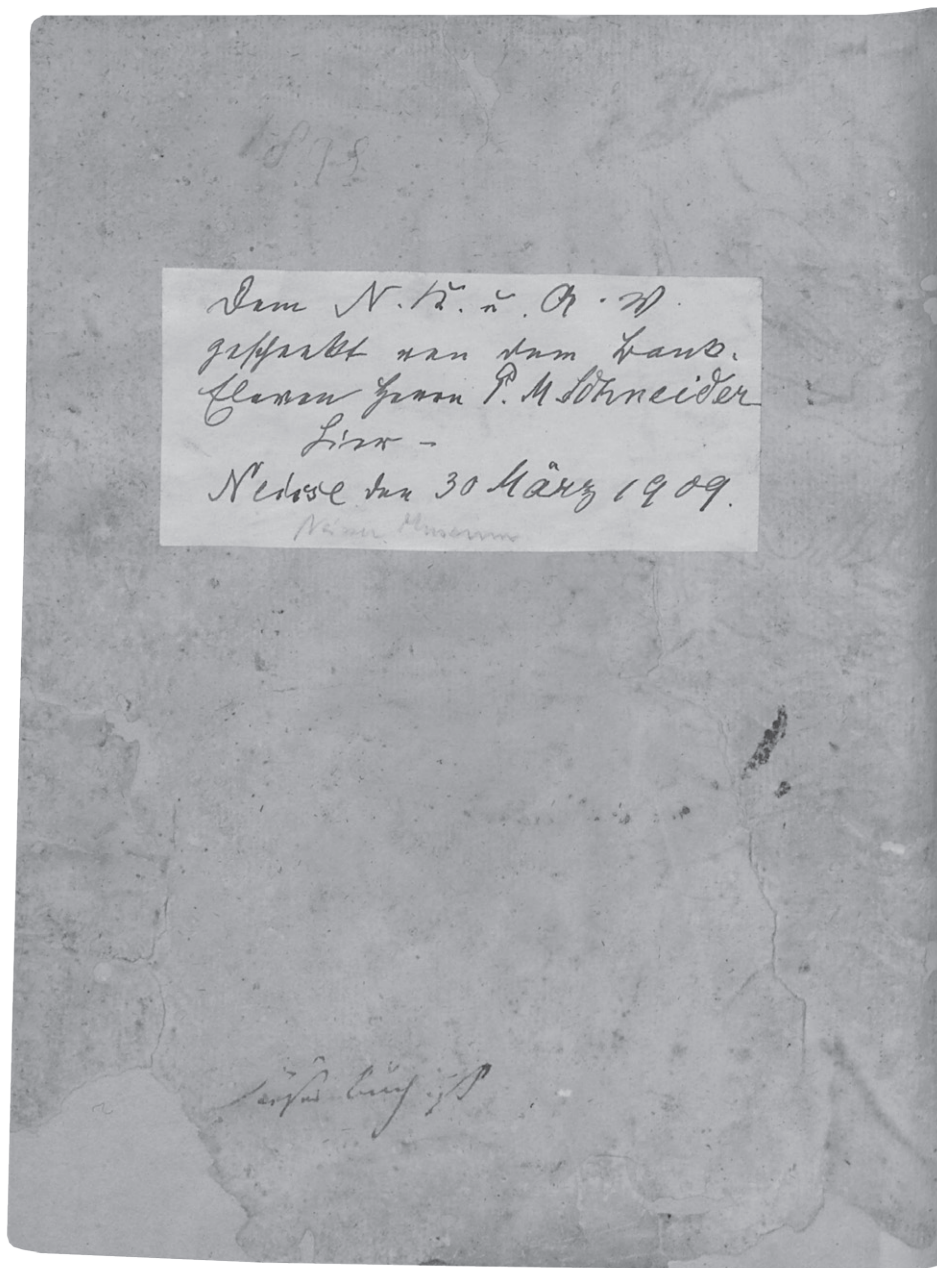 Dem N. K. u. A. V.
geschenkt von dem Bank-
Eleven Herrn P. M Schneider
hier -
Neisse den 30 März 1909.
Neisser Museum
buch ist